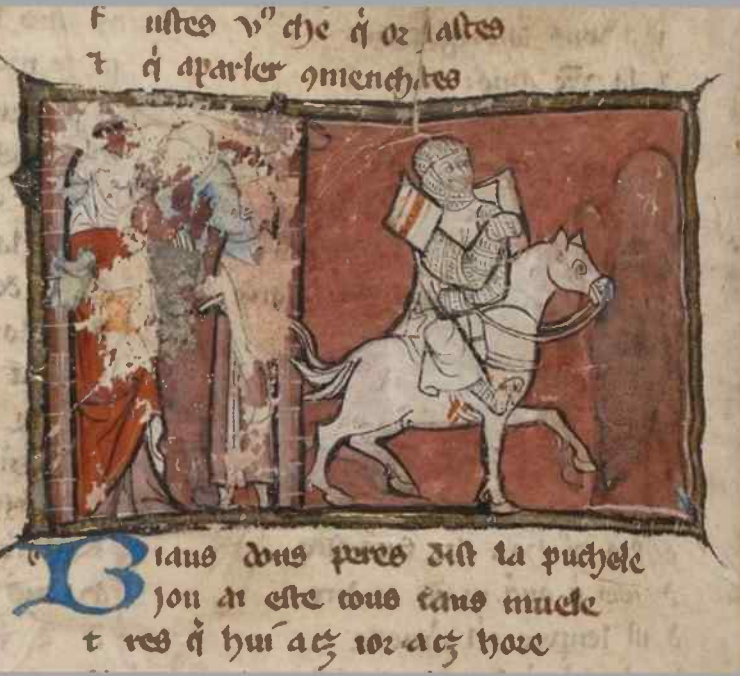 f ustes vꝰ che q̇ or fastes
t q̇ aparler ꝯmenchastes
Biaus dous peres dist la puchele
Jou ai este tous tans muele
t res q̇ hui a cꝫ ior a cꝫ hore